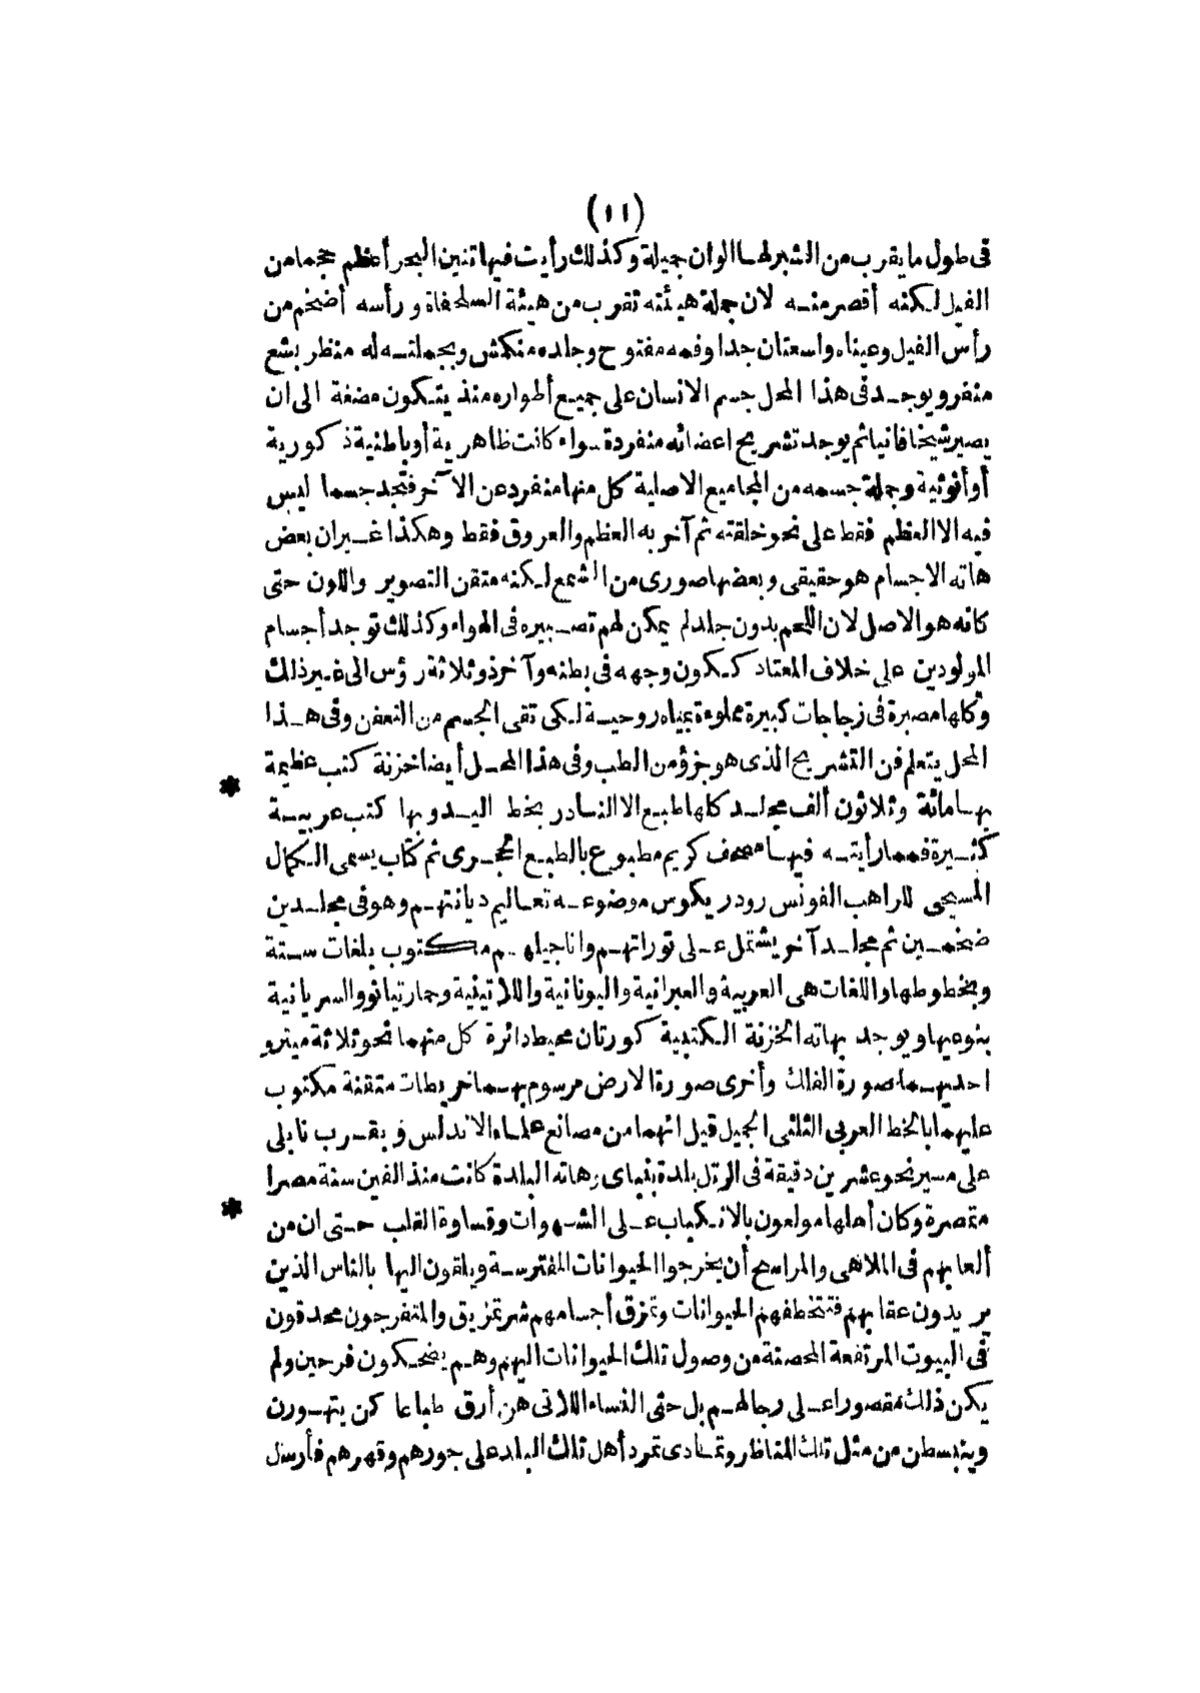 (١١)
فى طول ما يقرب من الشبر لها الوان جميلة وكذلك رأيت فيها تنين البحر أعظم حجما من
الفيل لكنه أقصر منه لان جملة هيئته تقرب من هيئة السلحفاة ورأسه أضخم من
رأس الفيل وعيناه واسعتان جدا وفمه مفتوح وجلده منكمش وبجملته له منظر بشع
منفر ويوجد فى هذا المحل جسم الانسان على جميع أطواره منذ يتكون مضغة الى ان
يصير شيخا فانيا ثم يوجد تشريح اعضائه منفردة سواء كانت ظاهرية أو باطنية ذكورية
أو أنوثية وجملة جسمه من المجاميع الاصلية كل منها منفرد عن الآخر فتجد جسما ليس
فيه الا العظم فقط على نحو خلقته ثم آخر به العظم والعروق فقط وهكذا غير ان بعض
هاته الاجسام هو حقيقى وبعضها صورى من الشمع لكنه متقن التصوير واللون حتى
كانه هو الاصل لان اللحم بدون جلد لم يمكن لهم تصبيره فى الهواء وكذلك توجد أجسام
المولودين على خلاف المعتاد ككون وجهه فى بطنه وآخر ذو ثلاثة رؤس الى غير ذلك
وكلها مصبرة فى زجاجات كبيرة مملوءة بمياه روحية لكى تقى الجسم من التعفن وفى هذا
المحل يتعلم فن التشريح الذى هو جزؤ من الطب وفى هذا المحل أيضا خزنة كتب عظيمة *
بها مائة وثلاثون ألف مجلد كلها طبع الا النادر بخط اليد وبها كتب عربية
كثيرة فمما رأيته فيها مصحف كريم مطبوع بالطبع الحجرى ثم كتاب يسمى الكمال
المسيحى للراهب الفونس رودريكوس موضوعه تعاليم ديانتهم وهو فى مجلدين
ضخمين ثم مجلد آخر يشتمل على توراتهم واناجيلهم مكتوب بلغات ستة
وبخطوطها واللغات هى العربية والعبرانية واليونانية واللاتينية وحمارتيانو والسريانية
بنوعيها ويوجد بهاته الخزنة الكتبية كورتان محيط دائرة كل منهما نحو ثلاثة ميترو
احديهما صورة الفلك وأخرى صورة الارض مرسوم بهما خريطات متقنة مكتوب
عليهما بالخط العربى الثلثى الجميل قيل انهما من مصانع علماء الاندلس وبقرب نابلى
على مسير نحو عشرين دقيقة فى الرتل بلدة بنباى وهاته البلدة كانت منذ الفين سنة مصرا *
متمصرة وكان أهلها مولعون بالانكباب على الشهوات وقساوة القلب حتى ان من
ألعابهم فى الملاهى والمراسح أن يخرجوا الحيوانات المفترسة ويلقون اليها بالناس الذين
يريدون عقابهم فتتخطفهم الحيوانات وتمزق أجسامهم شر تمزيق والمتفرجون محدقون
فى البيوت المرتفعة المحصنة من وصول تلك الحيوانات اليهم وهم يضحكون فرحين ولم
يكن ذلك مقصورا على رجالهم بل حتى النساء اللاتى هن أرق طباعا كن يتهورن
وينبسطن من مثل تلك المناظر وتمادى تمرد أهل تلك البلد على جورهم وقهرهم فأرسل